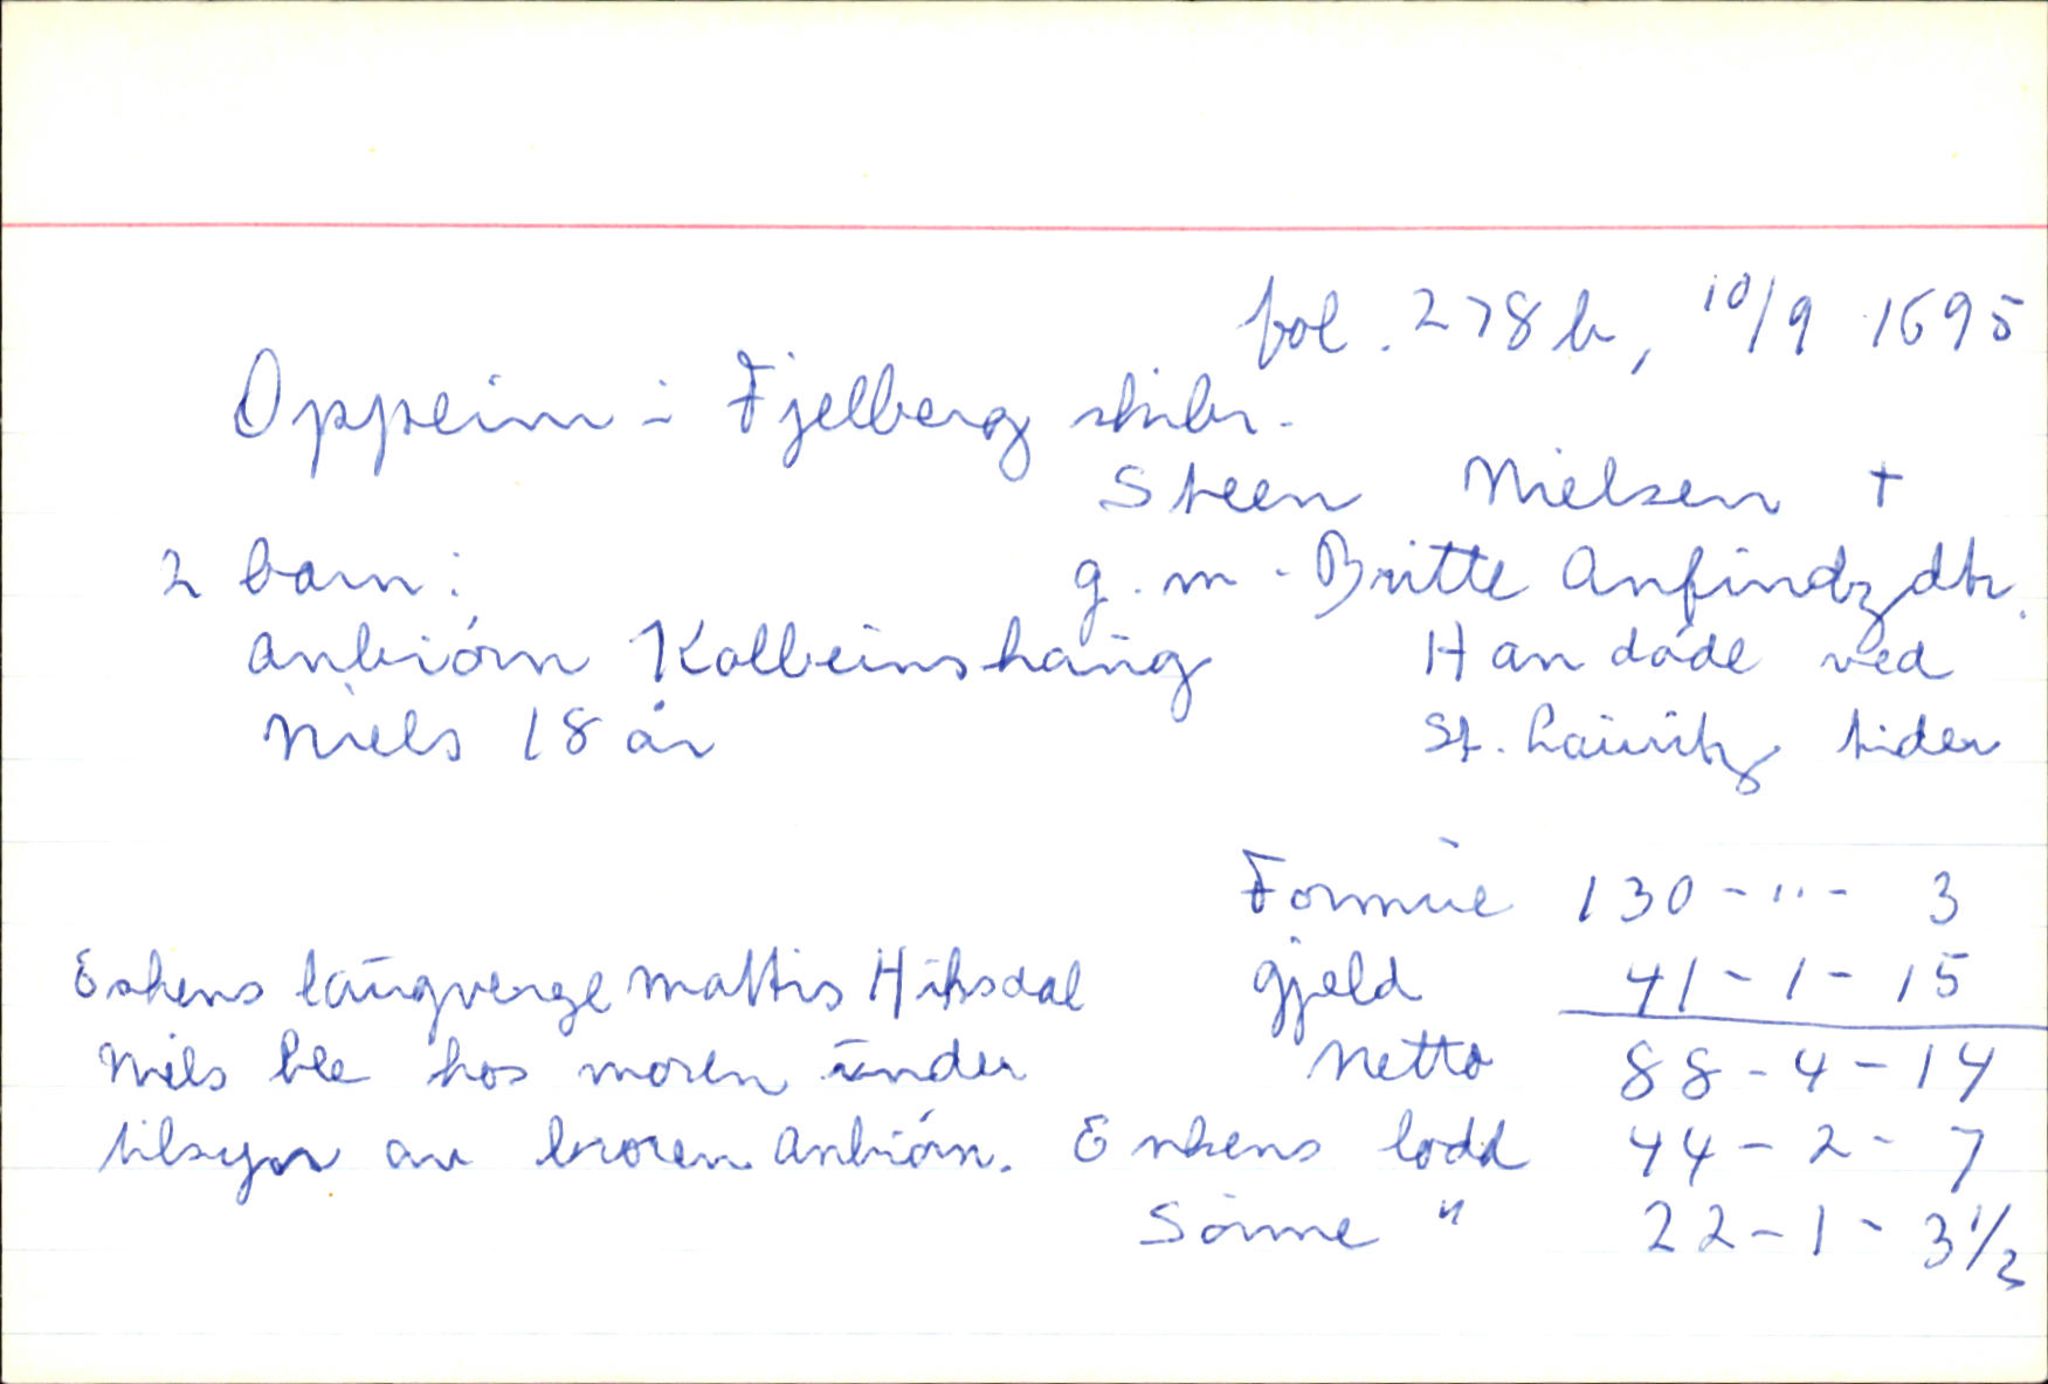 fol. 278 b, 10/9 1695
Oppeim i Fjelberg skibr.
Steen Nielsen +
2 barn: g.m. Britte Anfindzdtr.
Anbiórn Kolbeinshaūg Han dóde ved
Niels 18 år St. Laūritz tider
Formūe 130 - " - 3
Enkens laūgverge Mattis Hūsdal gjeld 41 - 1 - 15
Niels ble hos moren ūnder Netto 88 - 4 - 14
tilsyn av broren Anbiórn. Enkens lodd 44 - 2 - 7
Sónne " 22 - 1 - 3 1/2